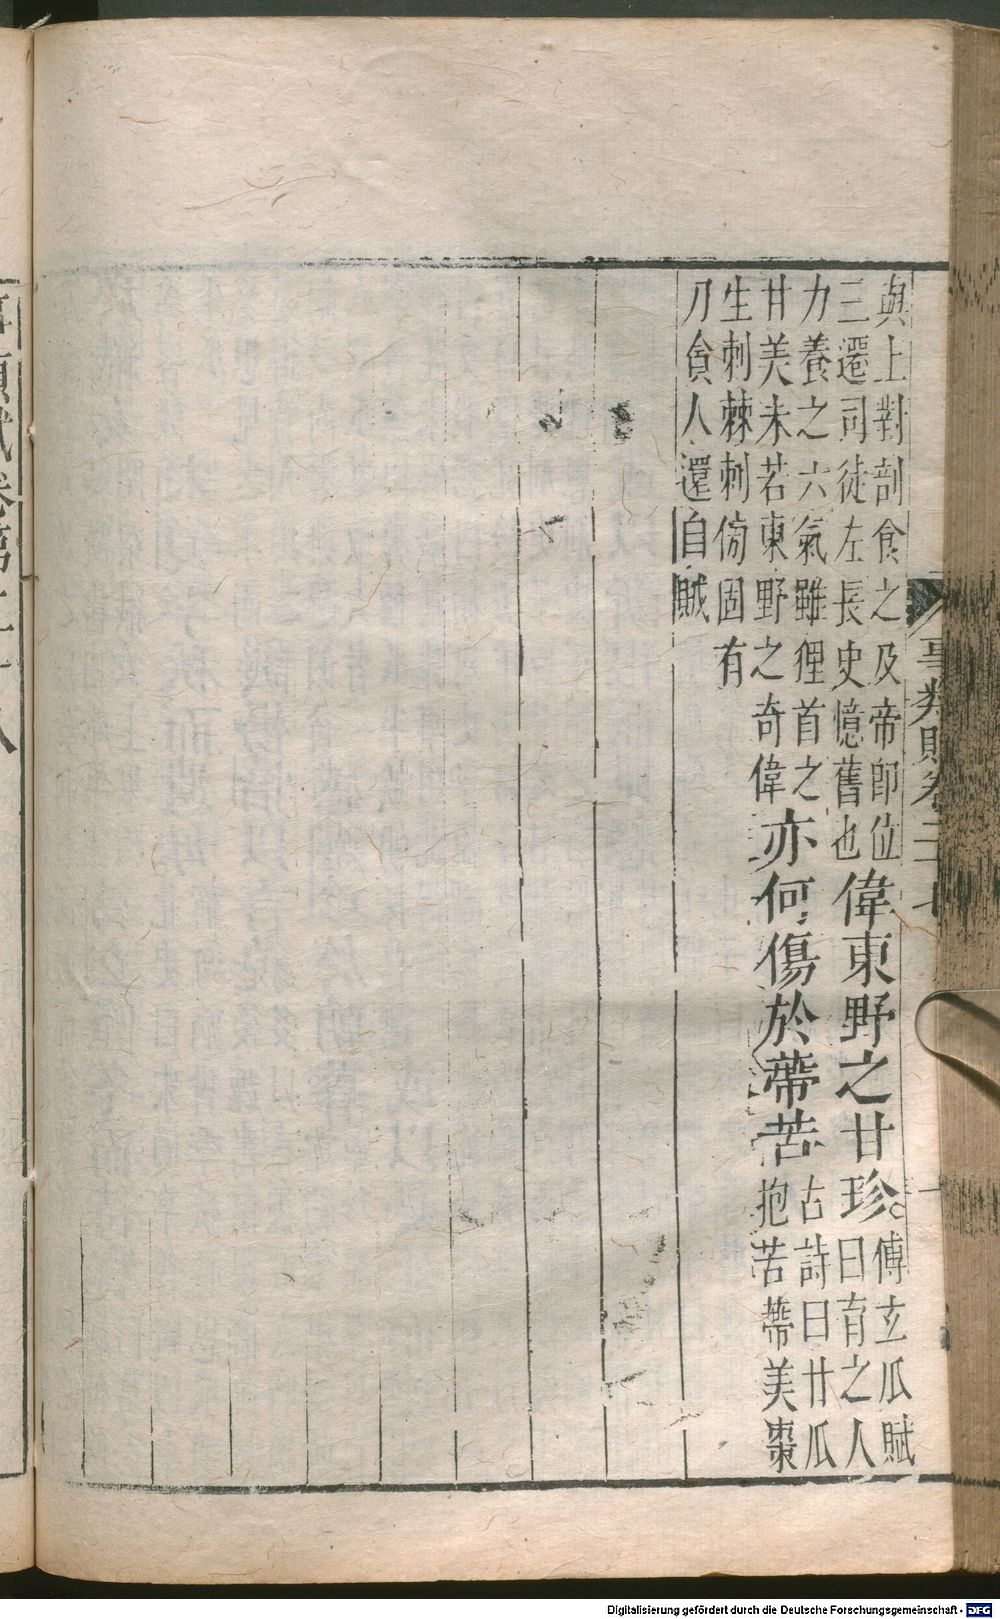 與上對剖食之及帝即位
三遷司徒左長史憶舊也
偉東野之甘珍。
傅玄瓜賦
曰有之人
力養之六氣雖狸首之
甘美未若東野之奇偉
亦何傷於蔕苦
古詩曰甘瓜
抱苦蔕美棗
生刺棘刺傍固有
刀貪人還自賊
事類賦卷二十七
一
事類賦卷第二十八
Digitalisierung gefördert durch die Deutsche Forschungsgemeinschaft - DFG